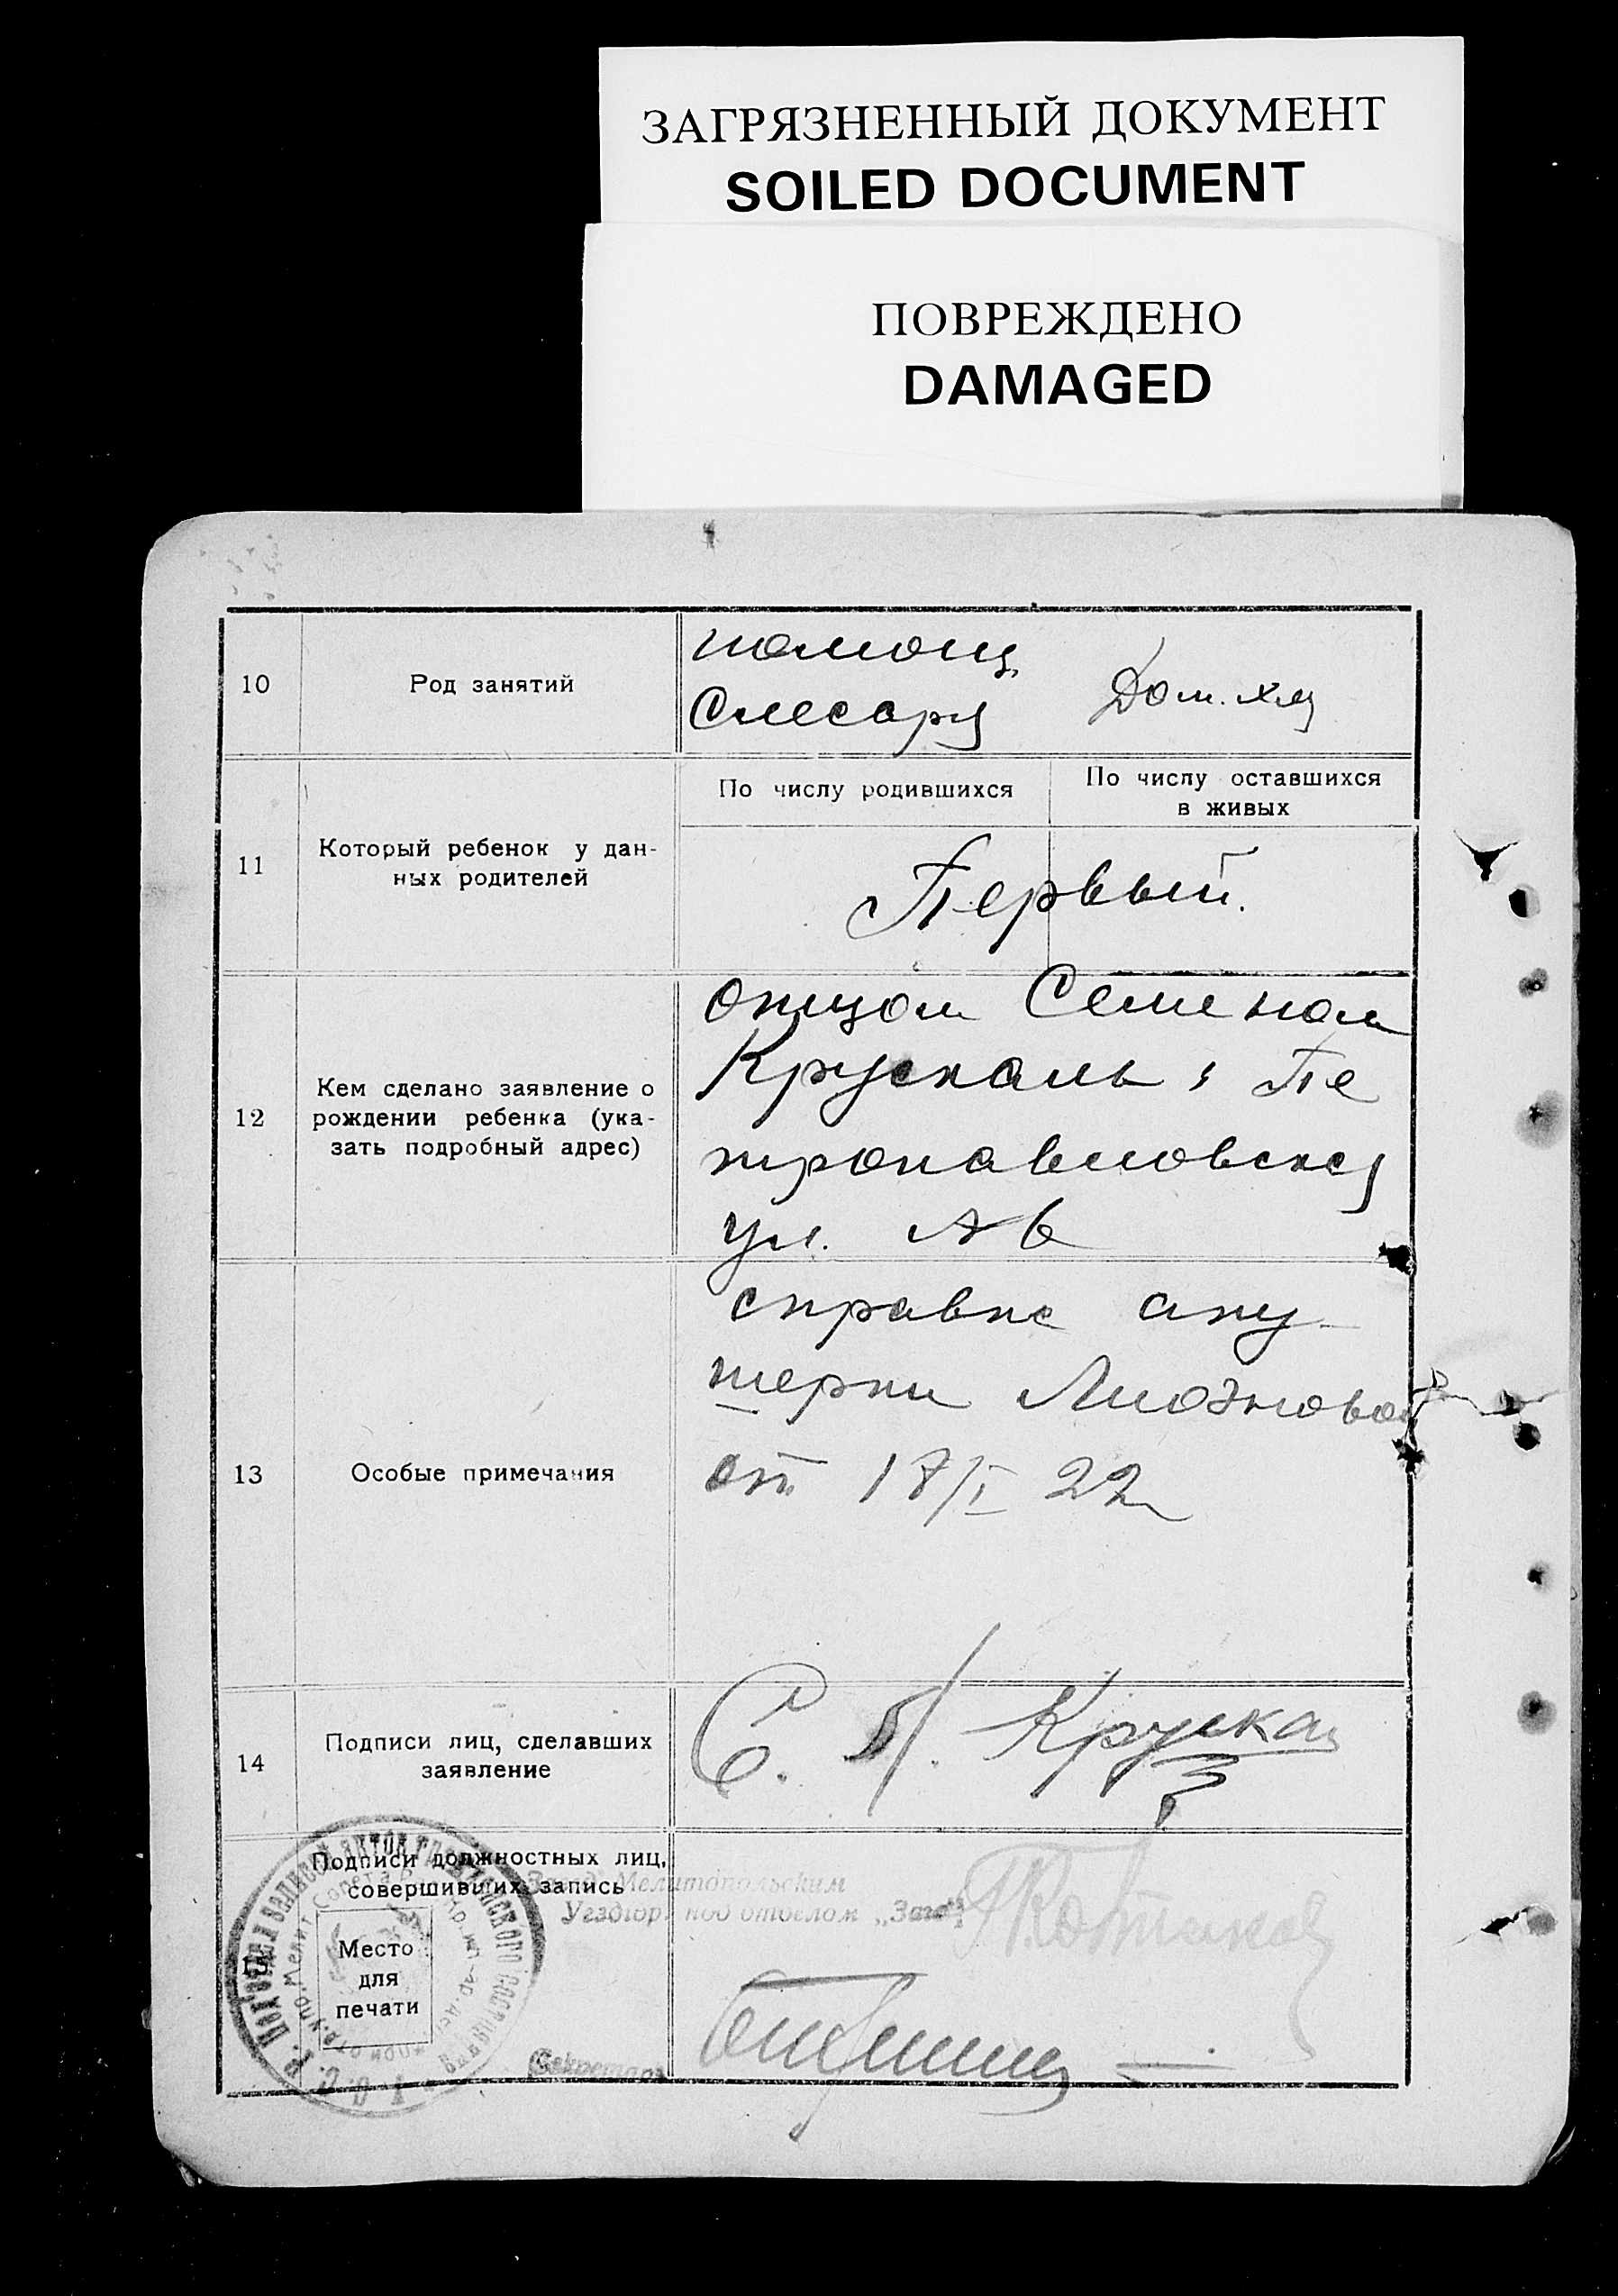 ЗАГРЯЗНЕННЫЙ ДОКУМЕНТ
SOILED DOCUMENT
ПОВРЕЖДЕНО
DAMAGED
10
Род занятий
помощ.
Слесаря
Дом. хоз
11
Который ребенок у дан-
ных родителей
По числу родившихся
По числу оставшихся
в живых
Первый.
12
Кем сделано заявление о
рождении ребенка (ука-
зать подробный адрес)
отцом Семеном
Крускаль, Пе
тропавловская
ул.
13
Особые примечания
справка аку-
шерки
от 17/I 22
14
Подписи лиц, сделавших
заявление
С. Крускал
Подписи должностных лиц,
совершивших запись
Завед. Мелитопольским
Уездгор. под отделом „Загс"
Место
для
печати
Секретарь